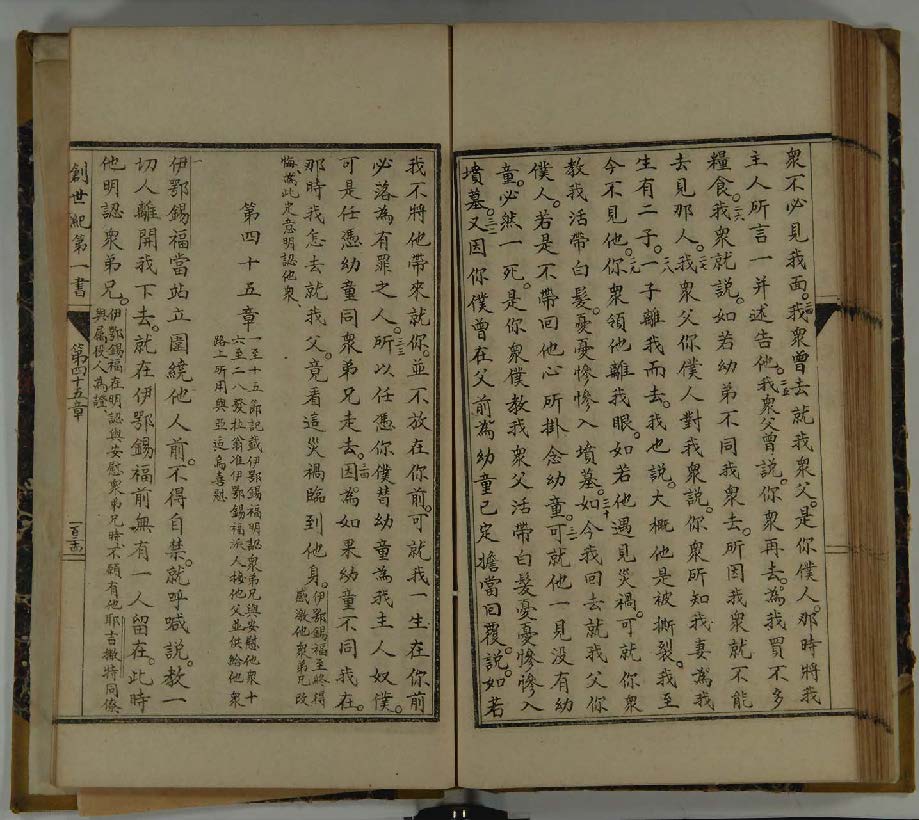 衆不必見我面。二四我衆曾去就我衆父。是你僕人。那時將我
主人所言一并述告他。二五我衆父曾説。你衆再去。為我買不多
糧食。二六我衆就説。如若幼弟不同我衆去。所因我衆就不能
去見那人。二七我衆父你僕人對我衆説。你衆所知我妻為我
生有二子。二八一子離我而去。我也説。大概他是被撕裂。我至
今不見他。二九你衆領他離我眼。如若他遇見災禍。可就你衆
教我活帶白髮。憂憂慘慘入墳墓。三十如今我回去就我父你
僕人。若是不帶回他心所掛念幼童。三一可就他一見没有幼
童。必然一死。是你衆僕教我衆父活帶白髮憂憂慘慘入
墳墓。三二又因你僕曾在父前為幼童已定擔當回覆。説。如若
我不將他帶來就你。並不放在你前。可就我一生在你前
必落為有罪之人。三三所以任憑你僕替幼童為我主人奴僕。
可是任憑幼童同衆弟兄走去。三四因為如果幼童不同我在。
那時我怎去就我父。竟看這災禍臨到他身。伊鄂錫福至終得
感激他衆弟兄改
悔。當此定意明認他衆
第四十五章
一至十五節記載伊鄂錫福明認衆弟兄與安慰他衆十
六至二八發拉翁准伊鄂錫福派人接他父並供給他衆
路上所用與亞适烏喜慰
一
伊鄂錫福當站立圍繞他人前。不得自禁。就呼喊説。教一
切人離開我下去。就在伊鄂錫福前無有一人留在。此時
他明認衆弟兄。伊鄂錫福在明認與安慰衆弟兄時不願有他耶吉撒特同僚
與屬役人為證
創世紀第一書
第四十五章